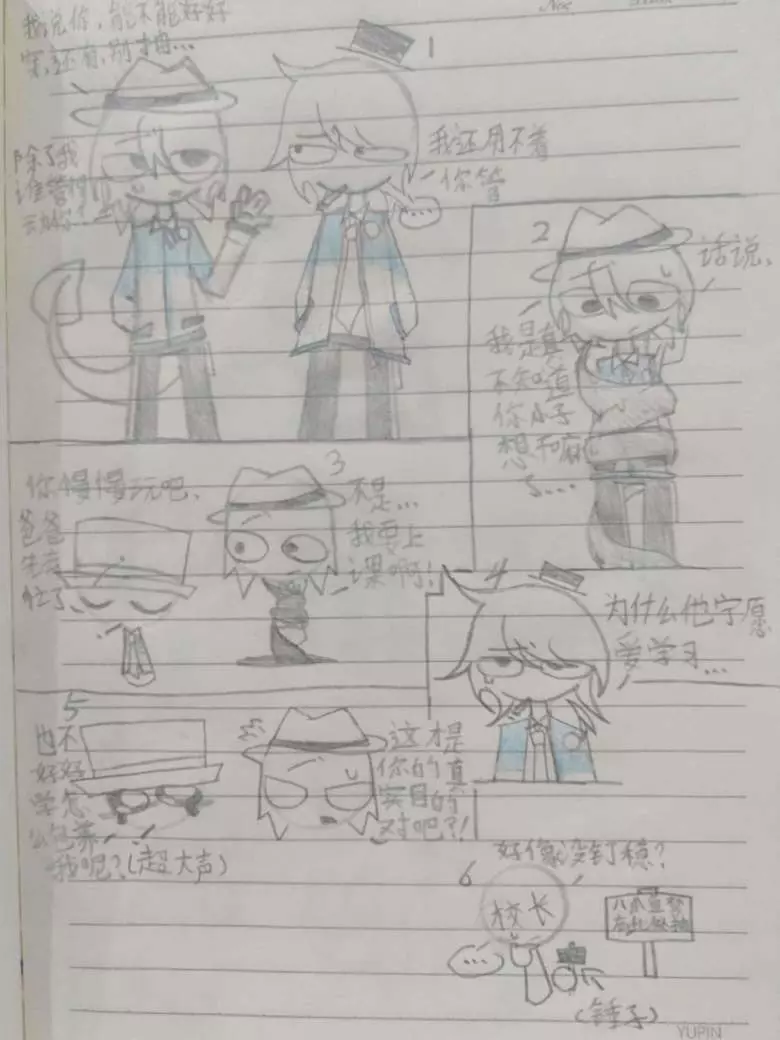 我说你,能不能好好
穿,还有,别抽...
1
除了我
谁管得
我还用不着
你管
...
2
话说,
我是真
不知道
你小子
想和麻
你慢慢玩吧,
爸爸
先走
3
不是...
我要上
课啊!
4
为什么他宁愿
爱学习...
5
也不
好好
学怎
么包养
我呢?(超大声)
这才是
你的真
实目的
对吧?!
6
好像没钉稳?
校长
...
(锤子)
YUPIN